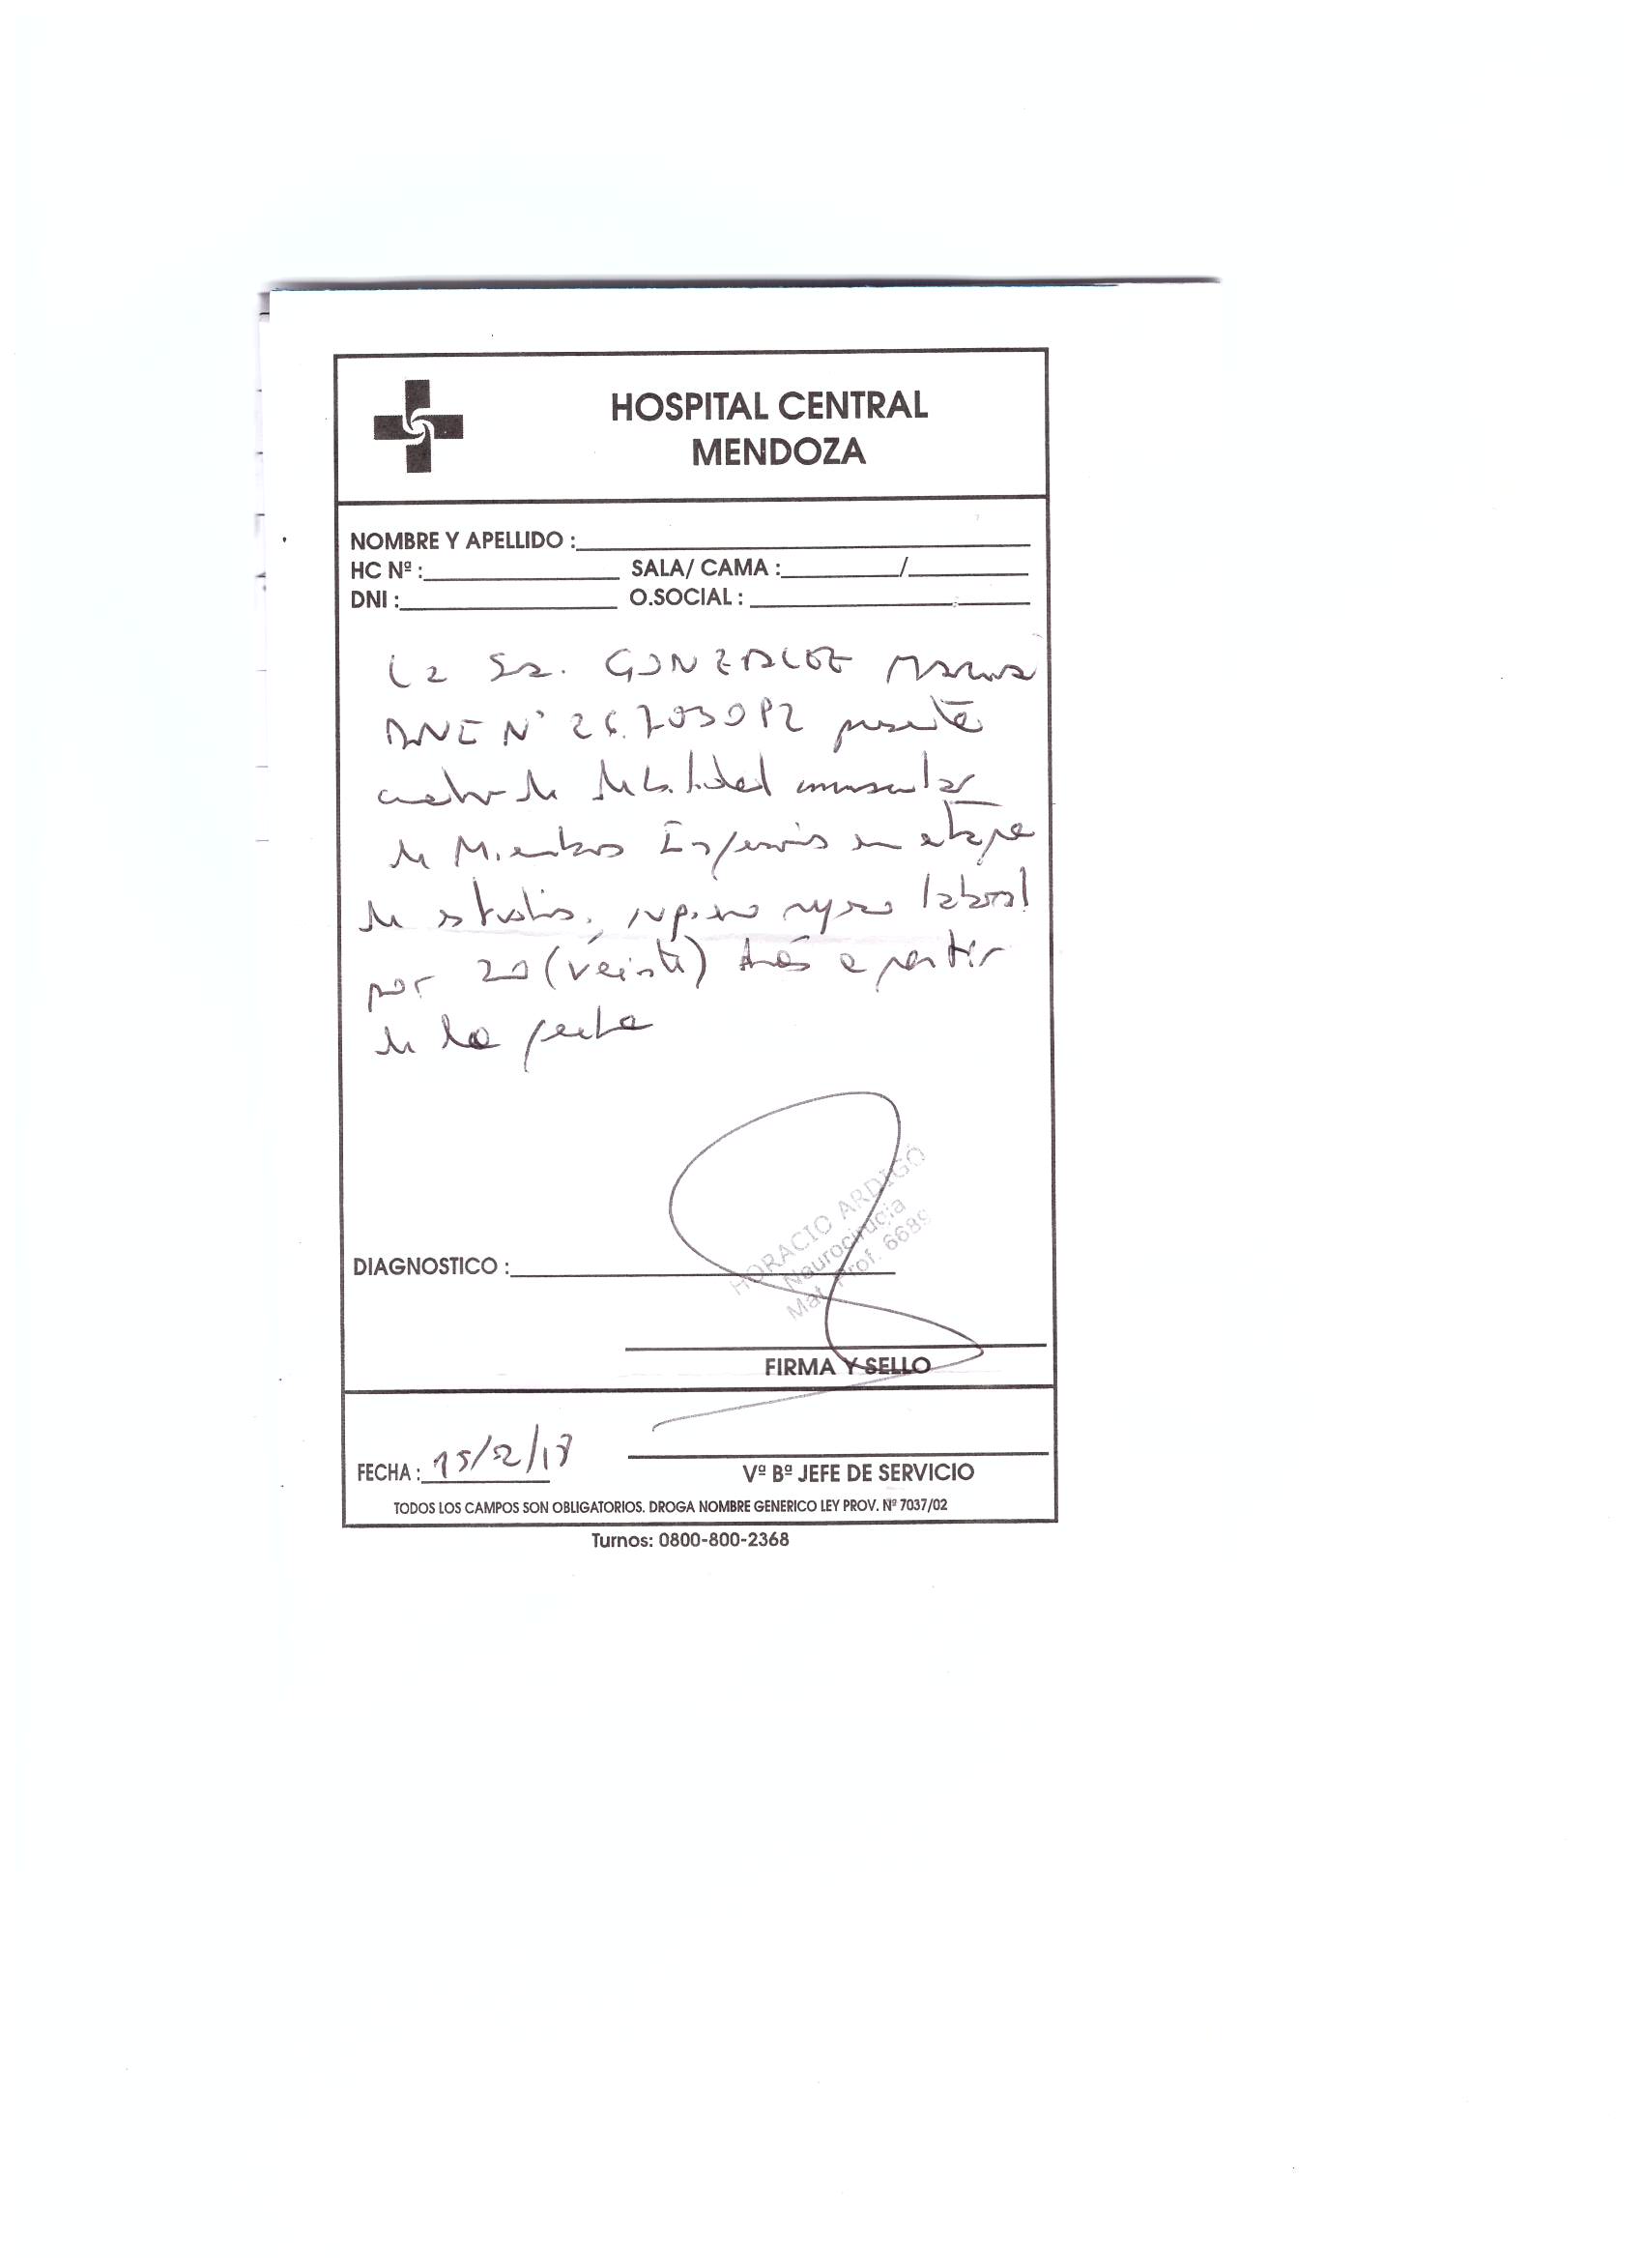 HOSPITAL CENTRAL
MENDOZA
NOMBRE Y APELLIDO :
HC Nº : SALA/ CAMA : /
DNI : O.SOCIAL :
La Sra. GONZALEZ
DNI Nº presenta
cuadro de debilidad muscular
de Miembros Inferiores en etapa
de estudios, sugiero reposo laboral
por 20 (veinte) días a partir
de la fecha
HORACIO ARDIGÓ
Neurocirugía
Mat. Prof. 6689
DIAGNOSTICO :
FIRMA Y SELLO
FECHA : 15/2/18
Vº Bº JEFE DE SERVICIO
TODOS LOS CAMPOS SON OBLIGATORIOS. DROGA NOMBRE GENERICO LEY PROV. Nº 7037/02
Turnos: 0800-800-2368